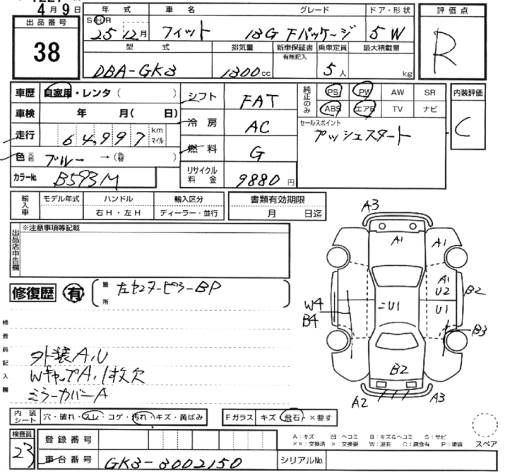 4月9日
出品番号
38
年式 車名 グレード ドア・形状
S・H・R 25年12月 フィット 13G Fパッケージ 5W
型式 排気量 新車保証書 有無記入 乗車定員 最大積載量
DBA-GK3 1300cc 5人 kg
評価点
R
車歴 自家用・レンタ( )
車検 年 月( 日)
走行 64997 km マイル
色 ブルー →( )
カラーNo. B593M
シフト FAT
冷房 AC
燃料 G
リサイクル料金 9880円
純正のみ PS PW AW SR
ABS エアB TV ナビ
セールスポイント
プッシュスタート
内装評価
C
輸入車 モデル年式 ハンドル 輸入区分
右H・左H ディーラー・並行
書類有効期限
月 日迄
出品店申告欄
※注意事項等記載
修復歴 有 箇所 左センターピラーBP
検査員記入欄
外装A,U
WキャップA,1枚欠
ミラーカバーA
A3
A1 A1
A1
U2 B2
W4 =U1 U1
B4 B3
B2
A2 A3
内装シート 穴・破れ・スレ・コゲ・汚れ・キズ・黄ばみ
Fガラス キズ・飛石・×要す
検査員
23
登録番号
車台番号 GK3-3002150 シリアルNo.
A:キズ B:キズ&ヘコミ S:サビ
××:交換済 ×:交換要 W:波形 C:腐食有 P:塗装
スペア